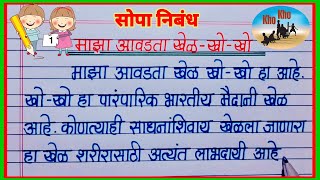 सोपा निबंध
Kho Kho
1
माझा आवडता खेळ-खो-खो
माझा आवडता खेळ खो-खो हा आहे.
खो-खो हा पारंपारिक भारतीय मैदानी खेळ
आहे. कोणत्याही साधनांशिवाय खेळला जाणारा
हा खेळ शरीरासाठी अत्यंत लाभदायी आहे